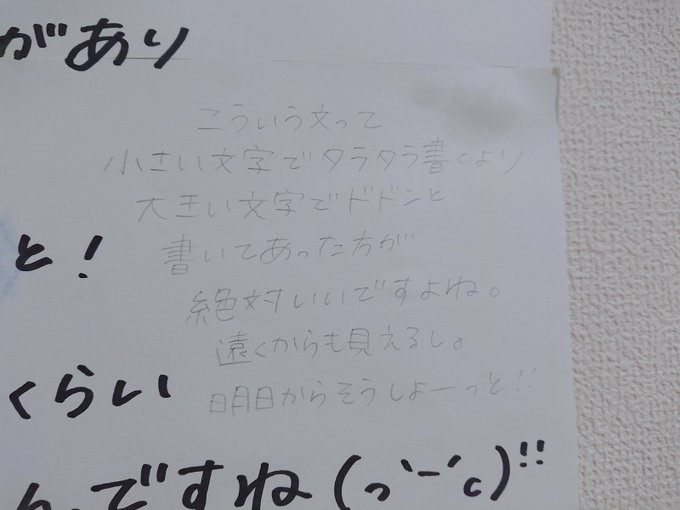 があり
こういう文って
小さい文字でタラタラ書くより
大きい文字でドドンと
書いてあった方が
と!
絶対いいですよね。
遠くからも見えるし。
くらい
明日からそうしよーっと!!
んですね(っ`-´c)!!